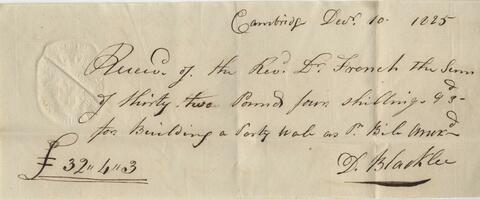 Cambridg Decr. 10. 1825
Receivd. of the Revd. Dr. French the Sum
of thirty two Pound four shillings & 3d
for Building a Party wale as Pr. Bile Anxrd
£ 32 " 4 " 3
D. Blacklee